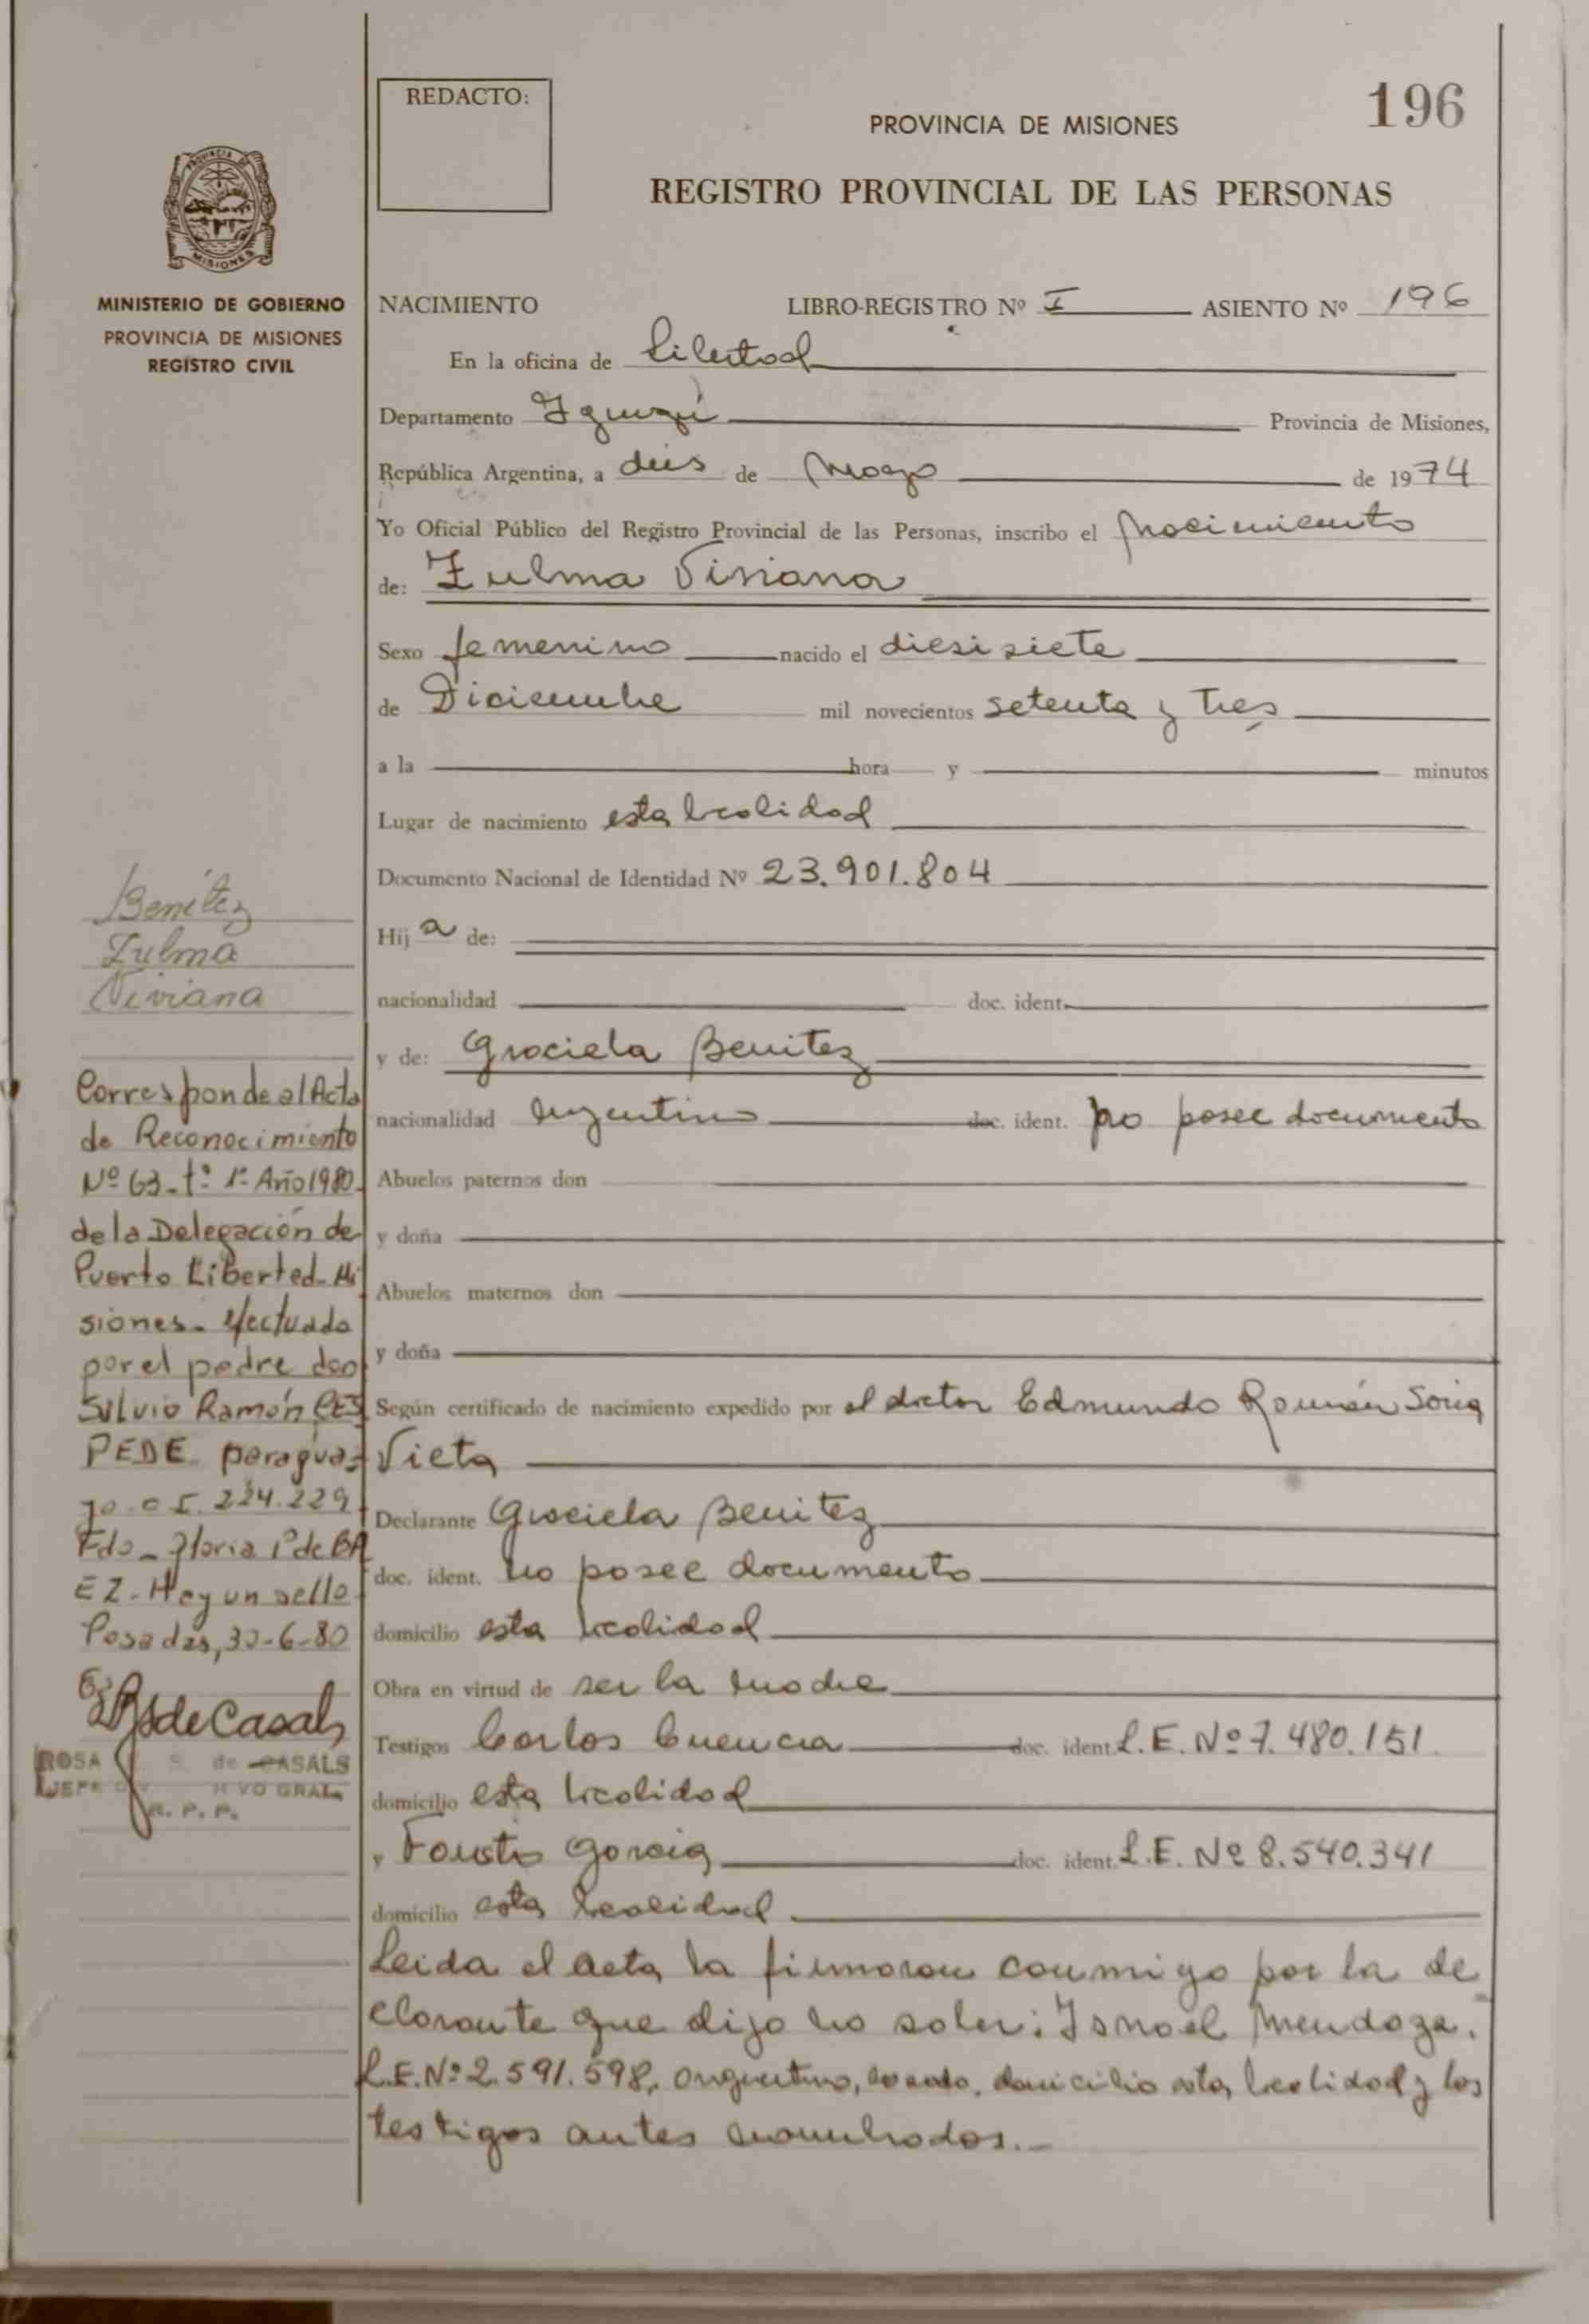 REDACTO:
196
PROVINCIA DE MISIONES
REGISTRO PROVINCIAL DE LAS PERSONAS
PROVINCIA DE
MISIONES
MINISTERIO DE GOBIERNO
PROVINCIA DE MISIONES
REGISTRO CIVIL
NACIMIENTO LIBRO-REGISTRO Nº I ASIENTO Nº 196
En la oficina de Libertad
Departamento Iguazú Provincia de Misiones,
República Argentina, a deis de Marzo de 1974
Yo Oficial Público del Registro Provincial de las Personas, inscribo el Nacimiento
de: Zulma Viviana
Sexo femenino nacido el diesisiete
de Diciembre mil novecientos setenta y tres
a la hora y minutos
Lugar de nacimiento esta localidad
Documento Nacional de Identidad Nº 23.901.804
Hij a de:
nacionalidad doc. ident.
y de: Graciela Benitez
nacionalidad Argentina doc. ident. No posee documento
Abuelos paternos don
y doña
Abuelos maternos don
y doña
Según certificado de nacimiento expedido por el doctor Edmundo Román Soria
Vieta
Declarante Graciela Benitez
doc. ident. No posee documento
domicilio esta localidad
Obra en virtud de ser la madre
Testigos Carlos Cuencia doc. ident. L.E. Nº 7.480.151
domicilio esta localidad
y Fausto Garcia doc. ident. L.E. Nº 8.540.341
domicilio esta localidad
Leida el acta, la firmaron conmigo por la de
clarante que dijo no saber: Ismael Mendoza.
L.E. Nº 2.591.598, argentino, casado, domicilio esta localidad y los
testigos antes nombrados.-
Benítez
Zulma
Viviana
Corresponde al Acta
de Reconocimiento
Nº 63-tº 1º- Año 1980
de la Delegación de
Puerto Libertad-Mi
siones- efectuado
por el padre don
Silvio Ramón CES
PEDE paragua-
yo C I. 224.229
Fdo- Gloria P de BA
EZ- Hay un sello
Posadas, 30-6-80
de Casals
ROSA S. de CASALS
JEFE VO GRAL.
R. P. P.